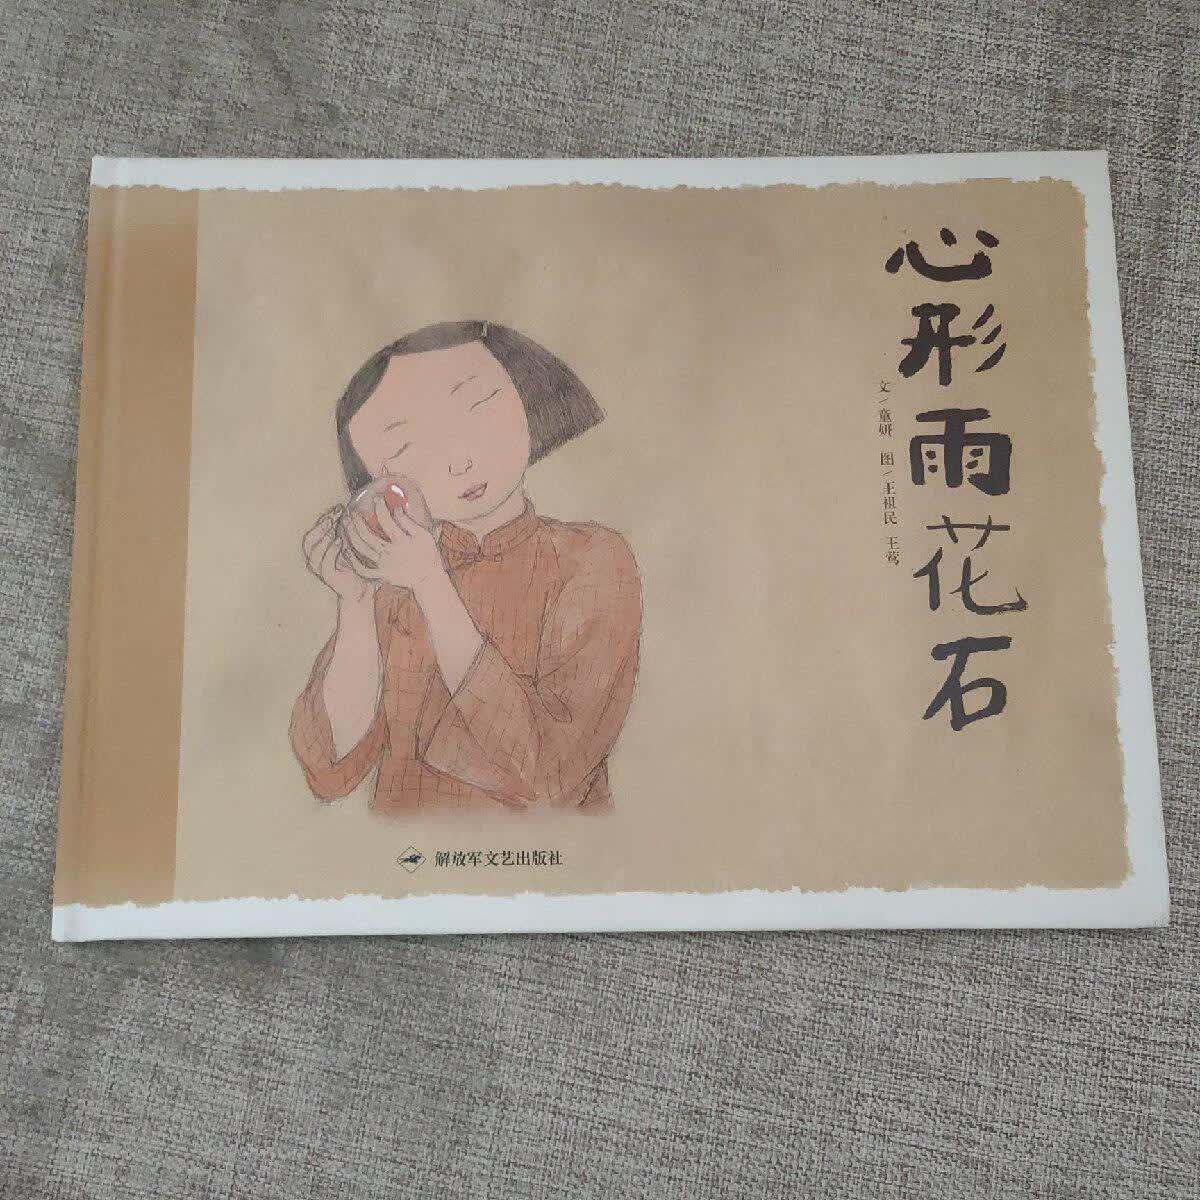 心形雨花石
文/童妍 图/王祖民 王莺
解放军文艺出版社